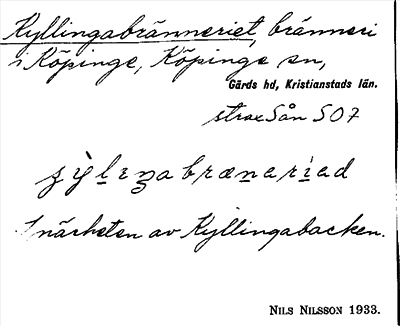 Kyllingabränneriet, bränneri
i Köpinge, Köpinge sn,
Gärds hd, Kristianstads län.
strax S ån S 07
I närheten av Kyllingabacken.
NILS NILSSON 1933.